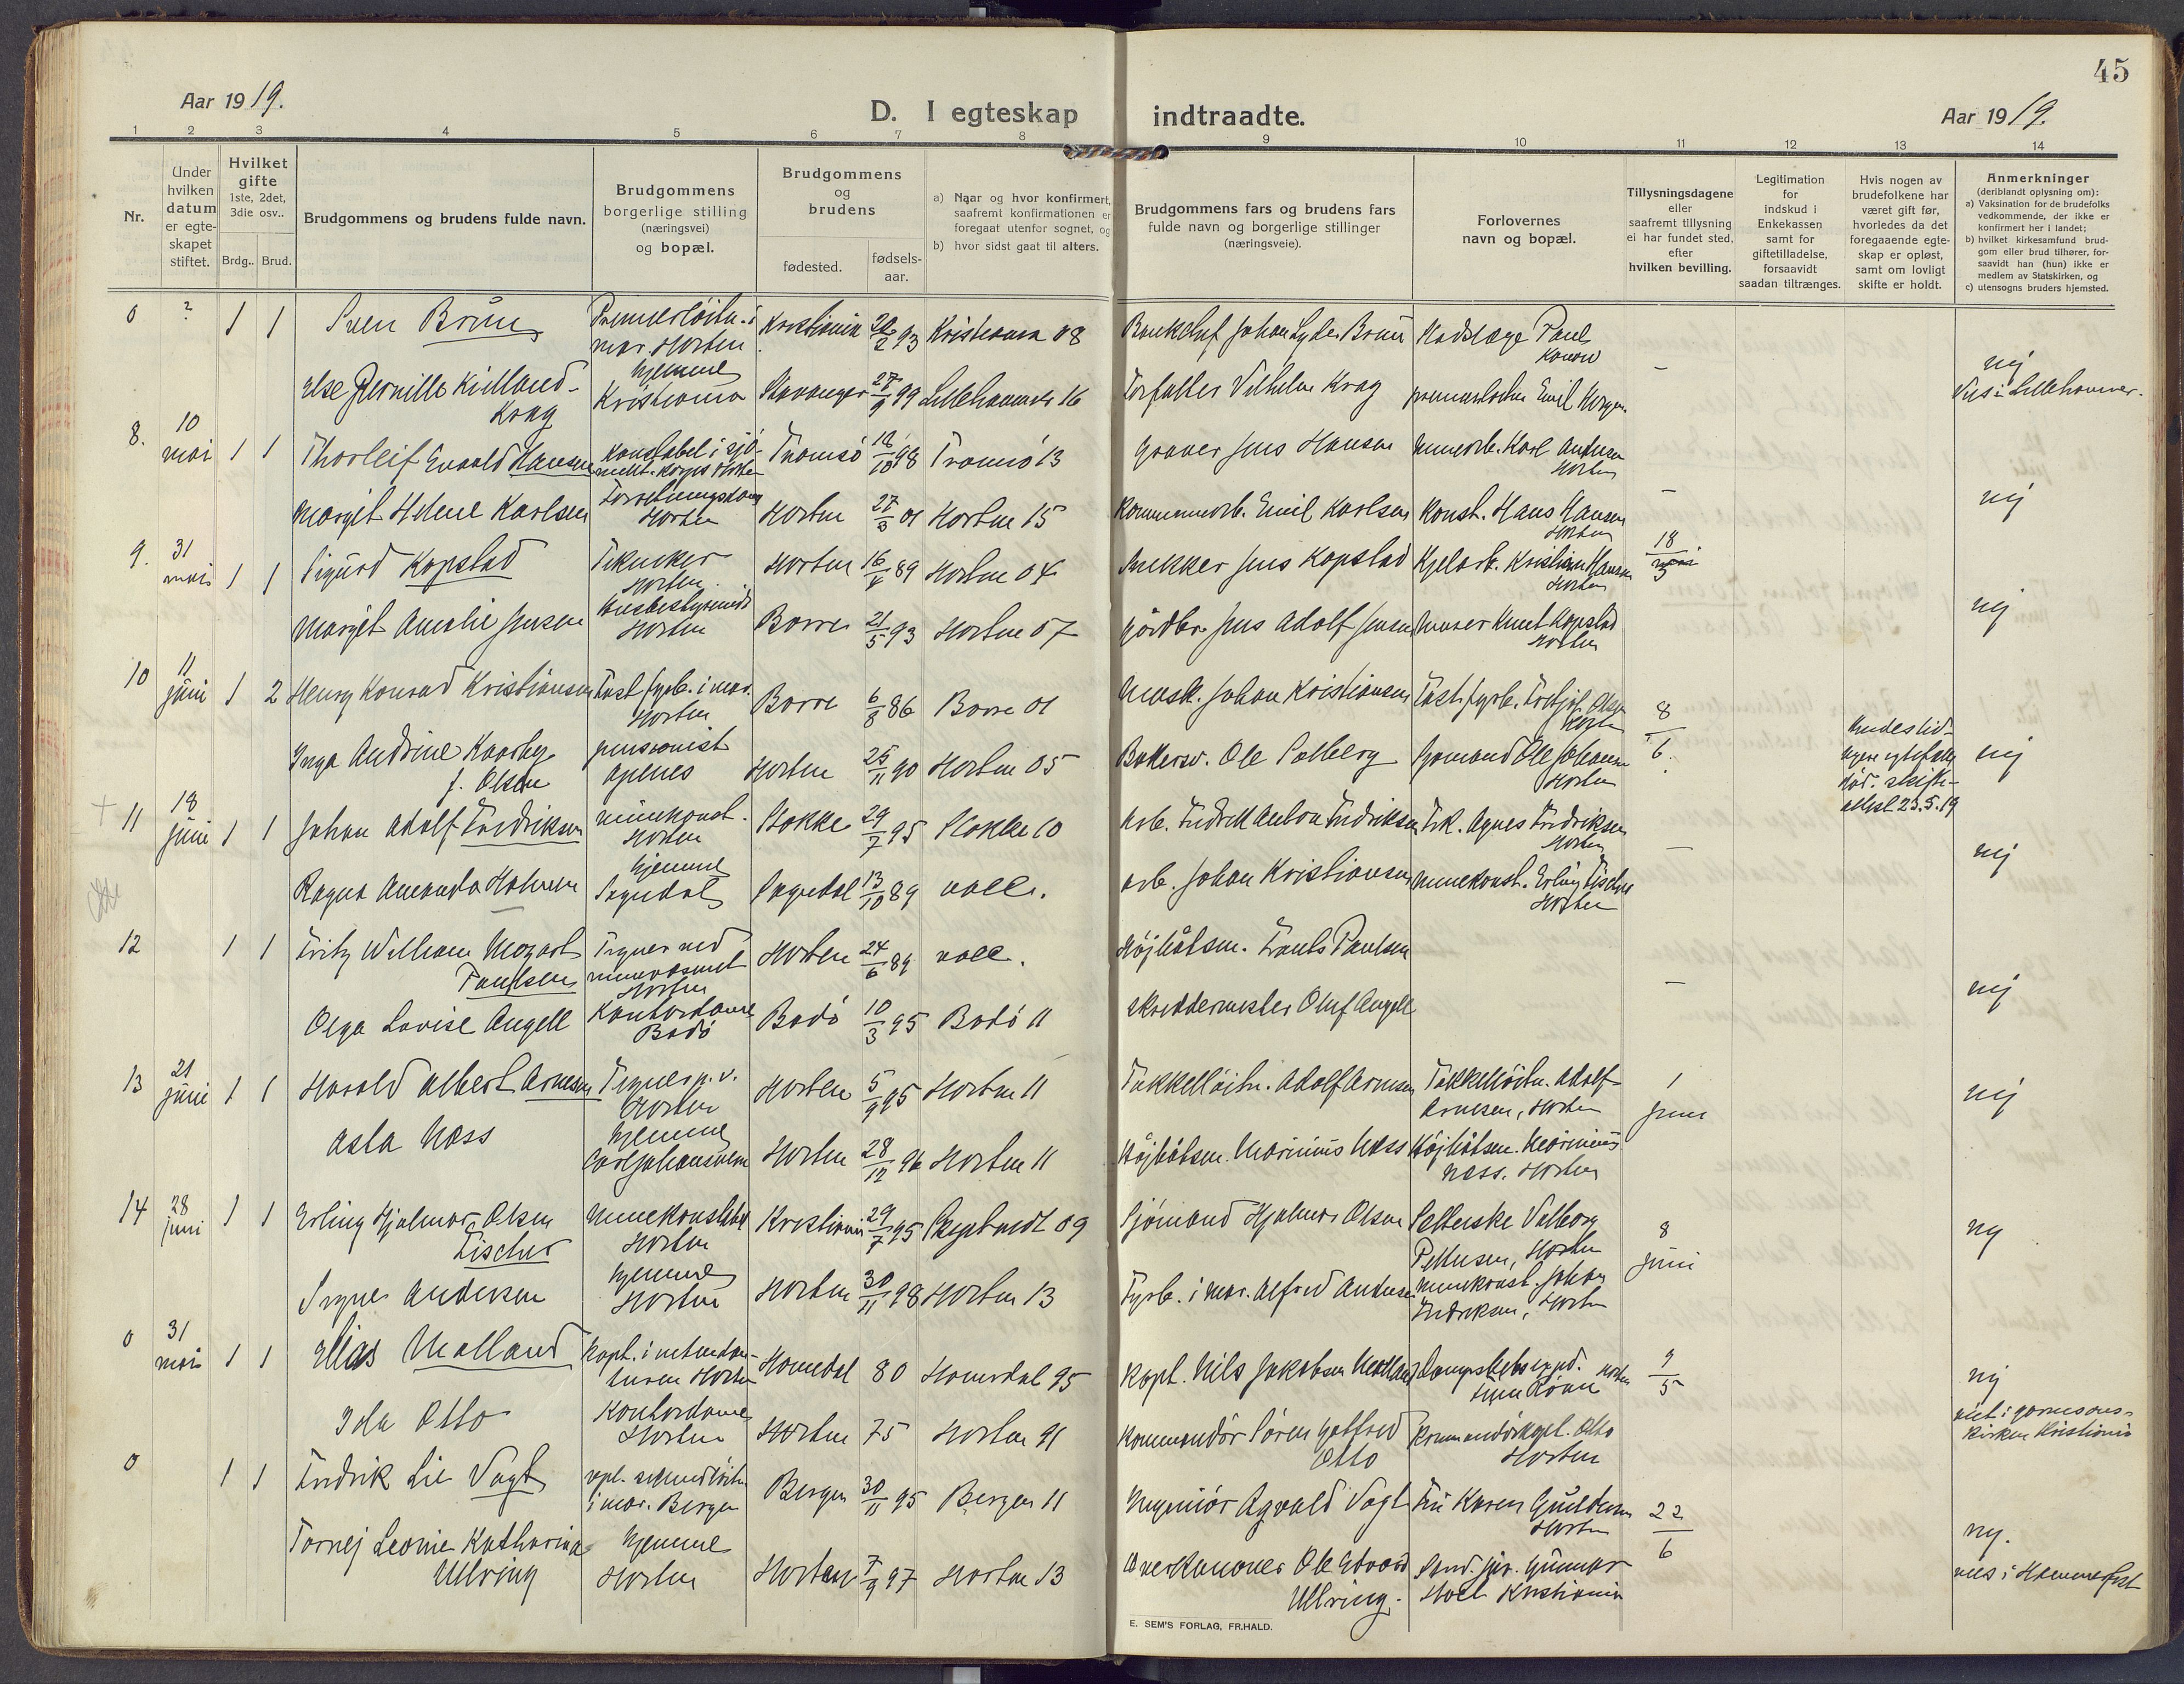 45
Aar 1919.
D. I egteskap indtraadte.
Aar 1919.
1 2 3 4 5 6 7 8 9 10 11 12 13 14
Nr.
Under hvilken datum er egte- skapet stiftet.
Hvilket gifte 1ste, 2det, 3die osv..
Brdg.. Brud.
Brudgommens og brudens fulde navn.
Brudgommens borgerlige stilling (næringsvei) og bopæl.
Brudgommens og brudens
fødested.
fødsels- aar.
a) Naar og hvor konfirmert, saafremt konfirmationen er foregaat utenfor sognet, og
b) hvor sidst gaat til alters.
Brudgommens fars og brudens fars fulde navn og borgerlige stillinger (næringsveie).
Forlovernes navn og bopæl.
Tillysningsdagene eller saafremt tillysning ei har fundet sted, efter hvilken bevilling.
Legitimation for indskud i Enkekassen samt for giftetilladelse, forsaavidt saadan tiltrænges.
Hvis nogen av brudefolkene har været gift før, hvorledes da det foregaaende egte- skap er opløst, samt om lovligt skifte er holdt.
Anmerkninger (deriblandt oplysning om):
a) Vaksination for de brudefolks vedkommende, der ikke er konfirmert her i landet;
b) hvilket kirkesamfund brud- gom eller brud tilhører, for- saavidt han (hun) ikke er medlem av Statskirken, og
c) utensogns bruders hjemsted.
0 ? 1 1 Sven Brün Premierløitn. i mar. Horten Kristiania 93 Kristiania 08 Bankchef Johan Lyder Brün Stadslæge Paul Konow –
Else Pernille Kielland-Krag hjemme Kristiania Stavanger 27/9 99 Lillehammer 16 Forfatter Vilhelm Krag premierløitn. Emil nej
Vies i Lillehammer.
8. 10 mai 1 1 Thorleif Evald Hansen Konstabel i sjø- mil. korps Horten Tromsö 18/10 98 Tromsö 13 Graver Jens Hansen minearb. Karl Andersen Horten
Margit Helene Karlsen Forretningsdame Horten Horten 27/3 01 Horten 15 Kommunearb. Emil Karlsen Konst. Hans Hansen Horten – nej
9. 31 mai 1 1 Sigurd Kopstad Horten Horten 16/4 89 Horten 04 Snekker Jens Kopstad Kjelarb. Kristian Hansen Horten 18/5
Margit Amalie Jensen Husbestyrerinde Horten Borre 21/5 93 Horten 07 gårdbr. Jens Adolf Jensen Murer Knut Kopstad Horten nej
10 11 juni 1 2 Henry Konrad Kristiansen Fast fyrb. i mar. Horten Borre 6/8 86 Borre 01 Mask. Johan Kristiansen Fast fyrb. Fridtjof Olsen Horten 8/6
Inga Andrine Kaarby f. Olsen pensionist Apenes Horten 25/11 90 Horten 05 Bakersv. Ole Solberg Sjømand Ole Johansen Horten nej
11 18 juni 1 1 Johan Adolf Fredriksen minekonst. Horten Stokke 29/7 95 Stokke 10 Arb. Fredrik Anton Fredriksen Frk. Agnes Fredriksen Horten –
Ragna Amanda Halvorsen hjemme Sogndal Sogndal 13/10 89 arb. Johan Kristiansen minekonst. Erling Fischer Horten nej
12 1 1 Fritz William Mozart Paulsen Tegner ved minevæsenet Horten Horten 24/6 89 Højbåtsm. Frants Paulsen
Olga Lovise Angell Kontordame Bodö Bodö 10/3 95 Bodö 11 skreddermester Oluf Angell – nej
13 21 juni 1 1 Harald Albert Arnesen Tegner p. v. Horten Horten 5/9 95 Horten 11 Takkelløitn. Adolf Arnesen Takkelløitn. Adolf Arnesen, Horten 1 juni nej
Asta Næss hjemme Carljohansværn Horten 28/12 96 Horten 11 Højbåtsm. Marinius Næss Højbåtsm. Marinius Næss. Horten
14 28 juni 1 1 Erling Hjalmar Olsen Fischer Minekonstabel Horten Kristiania 29/7 95 09 Sjömand Hjalmar Olsen Valborg Pettersen, Horten 8 juni nej
Signe Andersen hjemme Horten Horten 30/11 98 Horten 13 Fyrb. i mar. Alfred Andersen minekonst. Johan Fredriksen, Horten
0 31 mai 1 1 Elias Molland Kapt. i intendan- turen Horten Homedal 80 Homedal 95 Kapt. Nils Jakobsen Molland 9/5 nej
Ida Otto Kontordame Horten Horten 75 Horten 91 Kommandør Sören Gotfred Otto Kommandörkapt. Otto Horten viet i garnisons- kirken Kristiania
0 1 1 Fredrik Lie Vogt vpl. sekondløitn. i mar. Bergen Bergen 30/11 95 Bergen 11 Ingeniör Agvald Vogt Karen Horten 22/6
Tornej Leonie Katharina Ullring hjemme Horten Horten 7/9 97 Horten 13 Overkanoner Ole Edvard Ullring. Gunnar Hoel Kristiania nej.
vies i Hammerfest
E. SEM'S FORLAG, FR.HALD.